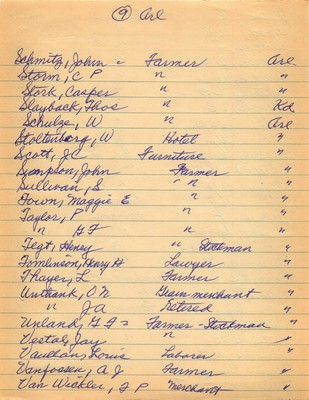 ⑨ Arl
Schmitz, John = Farmer Arl
Storm, C P " "
Stork, Casper " "
Slayback, Thos " Kd
Schulze, W " Arl
Stoltenberg, W Hotel "
Scott, J C Furniture "
Simpson, John Farmer "
Sullivan, S " " "
Town, Maggie E " "
Taylor, P " "
" G F " "
Tegt, Henry " Stockman "
Tomlinson, Henry H Lawyer "
Thayer, L Farmer "
Unthank, O N Grain merchant "
" J A Retired "
Unland, G F = Farmer - Stockman "
Vestal, Jay " "
Vaullan, Louis Laborer "
Vanfossen, A J Farmer "
Van Wickler, F P Merchant "